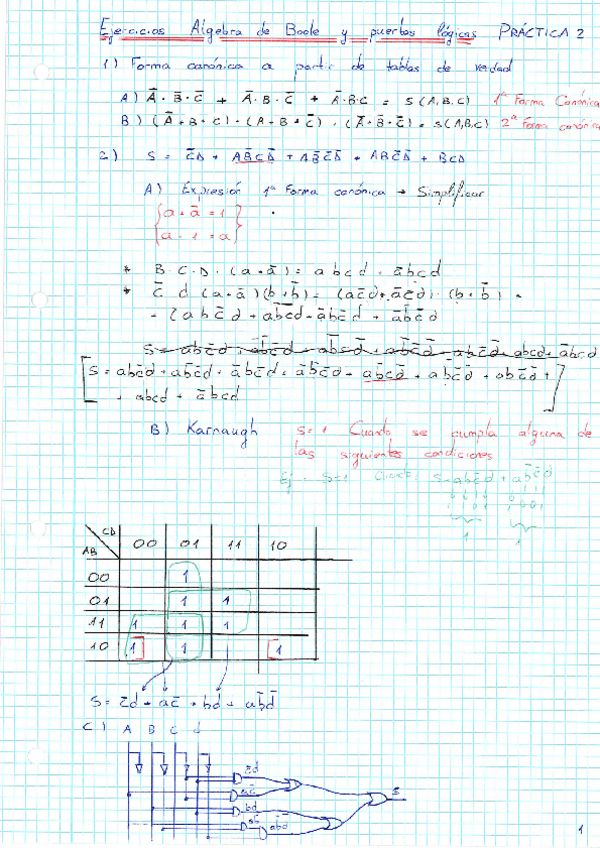 Ejercicios Algebra de Boole y puertas lógicas PRÁCTICA 2
1) Forma canónica a partir de tablas de verdad
A) Ā·B̄·C̄ + Ā·B·C̄ + Ā·B·C = S(A,B,C) 1ª Forma Canónica
B) (Ā+B+C)·(A+B+C̄)·(Ā+B̄+C̄) = S(A,B,C) 2ª Forma canónica
2) S = C̄D + AB̄CD̄ + AB̄C̄D̄ + ABC̄D̄ + BCD
A) Expresión 1ª Forma canónica → Simplificar
{a + ā = 1}
{a · 1 = a}
* B·C·D·(a+ā) = abcd + ābcd
* c̄ d (a+ā)(b+b̄) = (ac̄d + āc̄d)·(b+b̄) =
= [abc̄d + ab̄c̄d + ābc̄d + āb̄c̄d
[S = abc̄d + ab̄c̄d + ābc̄d + āb̄c̄d + ab̄cd̄ + ab̄c̄d̄ + abc̄d̄ +
+ abcd + ābcd]
B) Karnaugh S=1 Cuando se cumpla alguna de
las siguientes condiciones
Ej. S=1 S=abc̄d + ab̄c̄d
1 1
CD
AB 00 01 11 10
00 1
01 1 1
11 1 1 1
10 1 1 1
S = c̄d + ac̄ + bd + ab̄d̄
C) A B C d
c̄d
ac̄
S
bd
ab̄
ab̄d̄
1